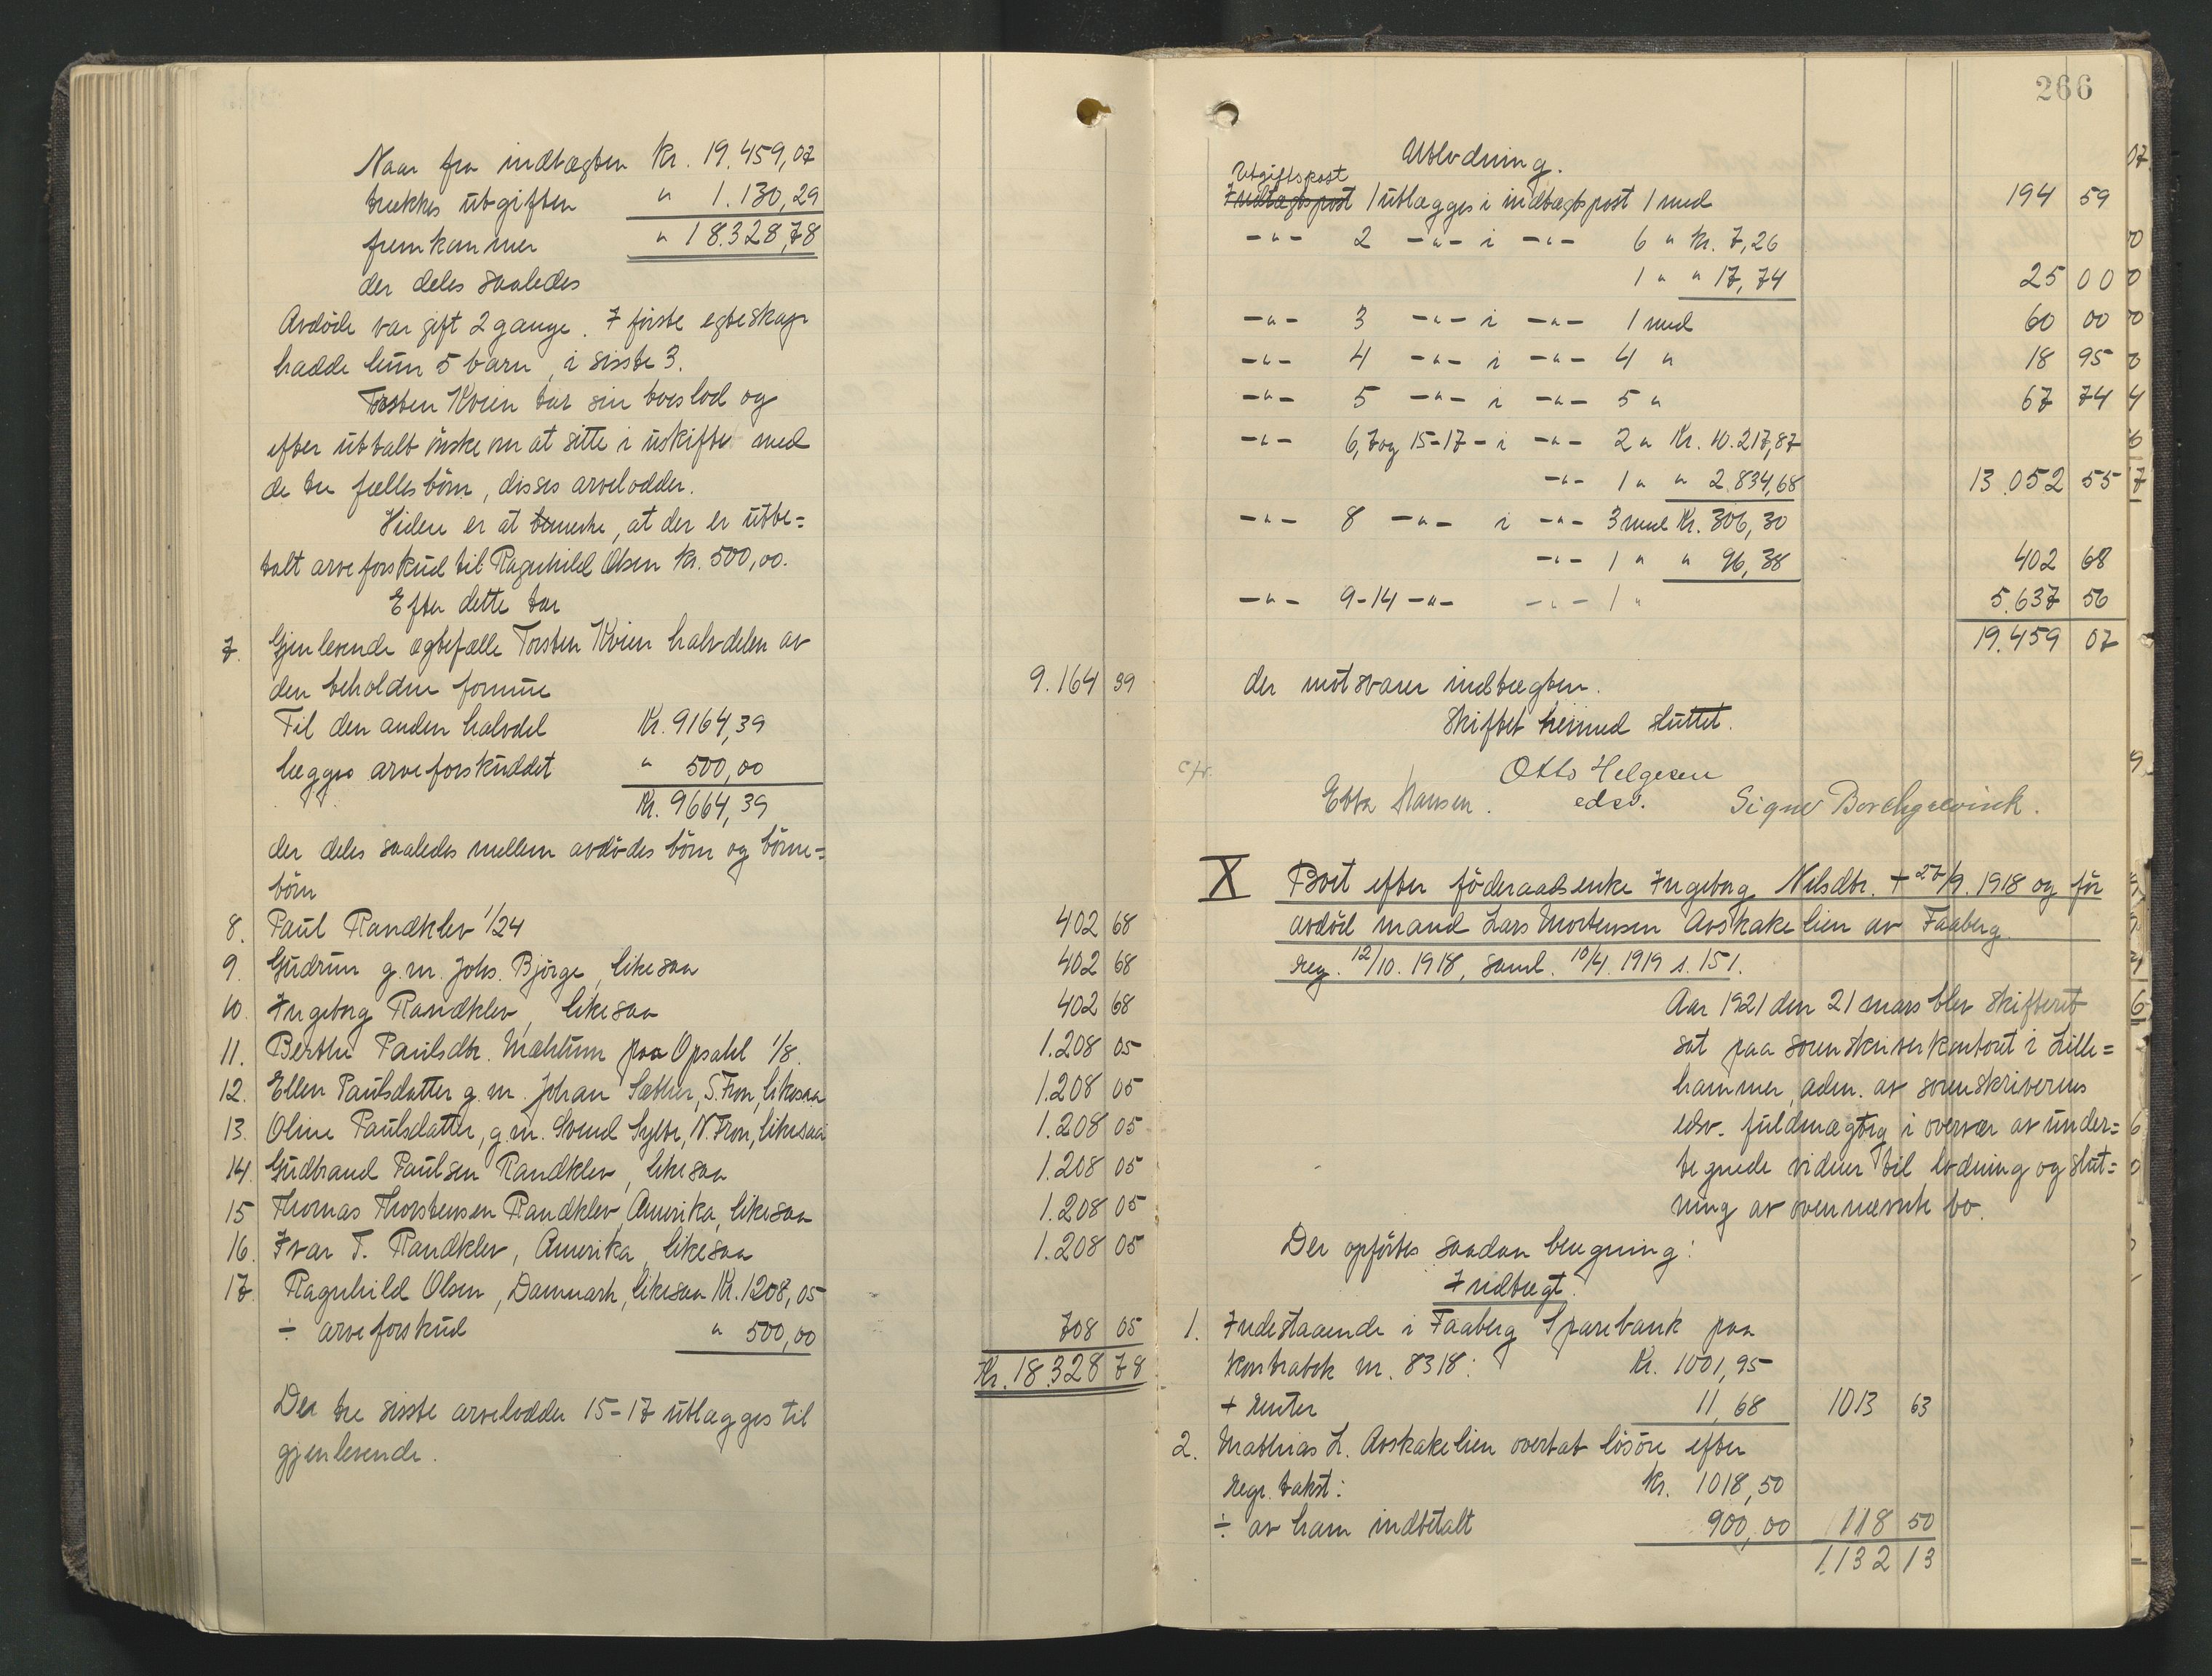 Naar fra indtægten Kr. 19.459,07
trækkes utgiften " 1.130,29
fremkommer " 18.328,78
der deles saaledes
Avdöde var gift 2 gange. I förste egteskap
hadde hun 5 barn, i sisste 3.
Torsten Kvien tar sin boslod og
efter uttalt önske om at sitte i uskifte med
de tre fælles börn, disses arvelodder.
Videre er at bemerke, at der er utbe=
talt arveforskud til Ragnhild Olsen kr. 500,00.
Efter dette tar
7. Gjenlevende ægtefælle Torsten Kvien halvdelen av
den beholdne formue 9.164 39
Til den anden halvdel Kr. 9164,39
lægges arveforskuddet " 500,00
Kr. 9664,39
der deles saaledes mellem avdödes börn og börne=
börn
8. Paul Randklev 1/24 402 68
9. Gudrun g.m. Johs. Bjørge, likesaa 402 68
10. Ingeborg Randklev, likesaa 402 68
11. Berthe Paulsdtr. Mæhlum paa Opsahl 1/8. 1.208 05
12. Ellen Paulsdatter g.m. Johan Sæther, S. Fron, likesaa 1.208 05
13. Oline Paulsdatter, g.m. Svend Sylte, N. Fron, likesaa 1.208 05
14. Gudbrand Paulsen Randklev, likesaa 1.208 05
15 Thomas Thorstensen Randklev, Amerika, likesaa 1.208 05
16. Ivar T. Randklev, Amerika, likesaa 1.208 05
17. Ragnhild Olsen, Danmark, likesaa Kr. 1208,05
÷ arveforskud " 500,00 708 05
Kr. 18.328 78
De tre sisste arvelodder 15-17 utlægges til
gjenlevende.
266
Utlodning.
Utgiftspost
Indtægtspost 1 utlægges i indtægtspost 1 med 194 59
-"- 2 -"- i -"- 6 " Kr. 7,26
1 " " 17,74 25 00
-"- 3 -"- i -"- 1 med 60 00
-"- 4 -"- i -"- 4 " 18 95
-"- 5 -"- i -"- 5 " 67 74
-"- 6, 7 og 15-17 - i -"- 2 " Kr. 10.217,87
-"- 1 " " 2.834,68 13.052 55
-"- 8 -"- i -"- 3 med Kr. 306,30
-"- 1 " " 96,38 402 68
-"- 9-14 -"- -"- 1 " 5.637 56
19.459 07
der motsvarer indtægten.
Skiftet hermed sluttet.
Otto Helgesen
edsv.
Ebba Hansen. Signe Borchgrevink.
X Boet efter föderaadsenke Ingeborg Nilsdtr. + 27/9. 1918 og för
avdöd mand Lars Mortensen Avskakelien av Faaberg.
reg. 12/10. 1918, saml. 10/4. 1919 s. 151.
Aar 1921 den 21 mars blev skifteret
sat paa sorenskriverkontoret i Lille=
hammer, adm. av sorenskriverens
edsv. fuldmægtig i overvær av under=
tegnede vidner til lodning og slut=
ning av ovennævnte bo.
Der opförtes saadan beregning:
Indtægt.
1. Indestaaende i Faaberg Sparebank paa
kontrabok nr. 8318: Kr. 1001,95
+ renter 11,68 1013 63
2. Mathias L. Avskakelien overtat lösöre efter
regr. takst: kr. 1018,50
÷ av ham indbetalt 900,00 118 50
1.132 13